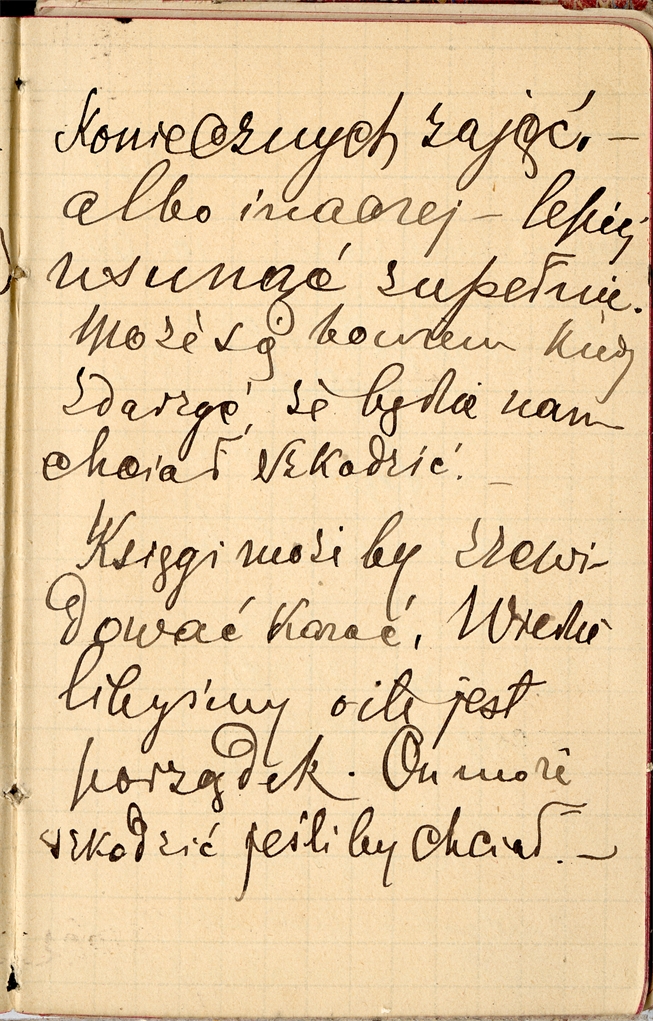 Koniecznych zajęć. —
albo inaczej — lepiej
usunąć zupełnie.
Może się bowiem kiedy
zdarzyć, że będzie nam
chciał szkodzić. —
Księgi może by zrewi-
dować kazać, Wiedzie
libyśmy o ile jest
porządek. On może
szkodzić jeśli by chciał. —